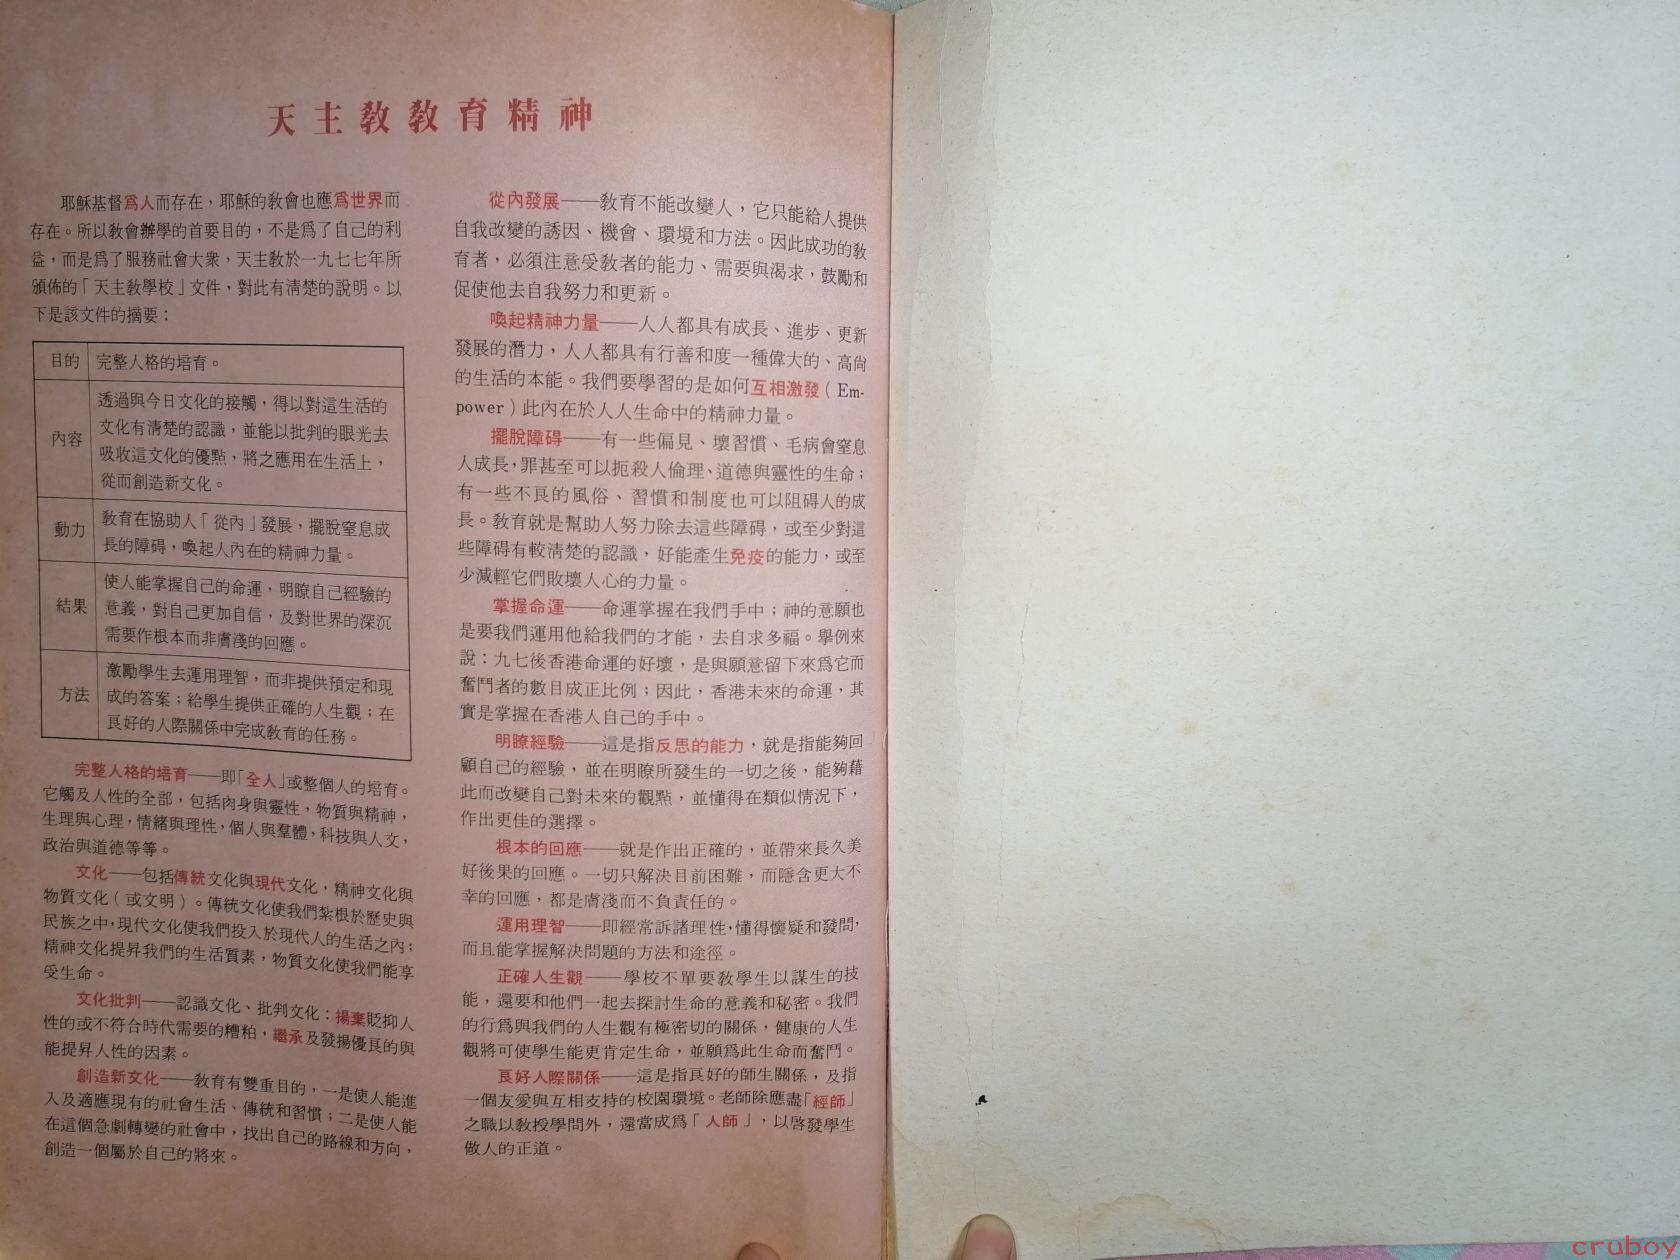 天主教教育精神
耶穌基督爲人而存在，耶穌的教會也應爲世界而
存在。所以教會辦學的首要目的，不是爲了自己的利
益，而是爲了服務社會大衆，天主教於一九七七年所
頒佈的「天主教學校」文件，對此有清楚的說明。以
下是該文件的摘要：
目的 完整人格的培育。
內容 透過與今日文化的接觸，得以對這生活的
文化有清楚的認識，並能以批判的眼光去
吸收這文化的優點，將之應用在生活上，
從而創造新文化。
動力 教育在協助人「從內」發展，擺脫窒息成
長的障碍，喚起人內在的精神力量。
結果 使人能掌握自己的命運，明瞭自己經驗的
意義，對自己更加自信，及對世界的深沉
需要作根本而非膚淺的回應。
方法 激勵學生去運用理智，而非提供預定和現
成的答案；給學生提供正確的人生觀；在
良好的人際關係中完成教育的任務。
完整人格的培育——即「全人」或整個人的培育。
它觸及人性的全部，包括肉身與靈性，物質與精神，
生理與心理，情緒與理性，個人與羣體，科技與人文，
政治與道德等等。
文化——包括傳統文化與現代文化，精神文化與
物質文化（或文明）。傳統文化使我們紮根於歷史與
民族之中，現代文化使我們投入於現代人的生活之內；
精神文化提昇我們的生活質素，物質文化使我們能享
受生命。
文化批判——認識文化、批判文化：揚棄貶抑人
性的或不符合時代需要的糟粕，繼承及發揚優良的與
能提昇人性的因素。
創造新文化——教育有雙重目的，一是使人能進
入及適應現有的社會生活、傳統和習慣；二是使人能
在這個急劇轉變的社會中，找出自己的路線和方向，
創造一個屬於自己的將來。
從內發展——教育不能改變人，它只能給人提供
自我改變的誘因、機會、環境和方法。因此成功的教
育者，必須注意受教者的能力、需要與渴求，鼓勵和
促使他去自我努力和更新。
喚起精神力量——人人都具有成長、進步、更新
發展的潛力，人人都具有行善和度一種偉大的、高尙
的生活的本能。我們要學習的是如何互相激發（Em-
power）此內在於人人生命中的精神力量。
擺脫障碍——有一些偏見、壞習慣、毛病會窒息
人成長，罪甚至可以扼殺人倫理、道德與靈性的生命；
有一些不良的風俗、習慣和制度也可以阻碍人的成
長。教育就是幫助人努力除去這些障碍，或至少對這
些障碍有較清楚的認識，好能產生免疫的能力，或至
少減輕它們敗壞人心的力量。
掌握命運——命運掌握在我們手中；神的意願也
是要我們運用他給我們的才能，去自求多福。舉例來
說：九七後香港命運的好壞，是與願意留下來爲它而
奮鬥者的數目成正比例；因此，香港未來的命運，其
實是掌握在香港人自己的手中。
明瞭經驗——這是指反思的能力，就是指能夠回
顧自己的經驗，並在明瞭所發生的一切之後，能夠藉
此而改變自己對未來的觀點，並懂得在類似情況下，
作出更佳的選擇。
根本的回應——就是作出正確的，並帶來長久美
好後果的回應。一切只解決目前困難，而隱含更大不
幸的回應，都是膚淺而不負責任的。
運用理智——即經常訴諸理性，懂得懷疑和發問，
而且能掌握解決問題的方法和途徑。
正確人生觀——學校不單要教學生以謀生的技
能，還要和他們一起去探討生命的意義和秘密。我們
的行爲與我們的人生觀有極密切的關係，健康的人生
觀將可使學生能更肯定生命，並願爲此生命而奮鬥。
良好人際關係——這是指良好的師生關係，及指
一個友愛與互相支持的校園環境。老師除應盡「經師」
之職以教授學問外，還當成爲「人師」，以啓發學生
做人的正道。
cruboy